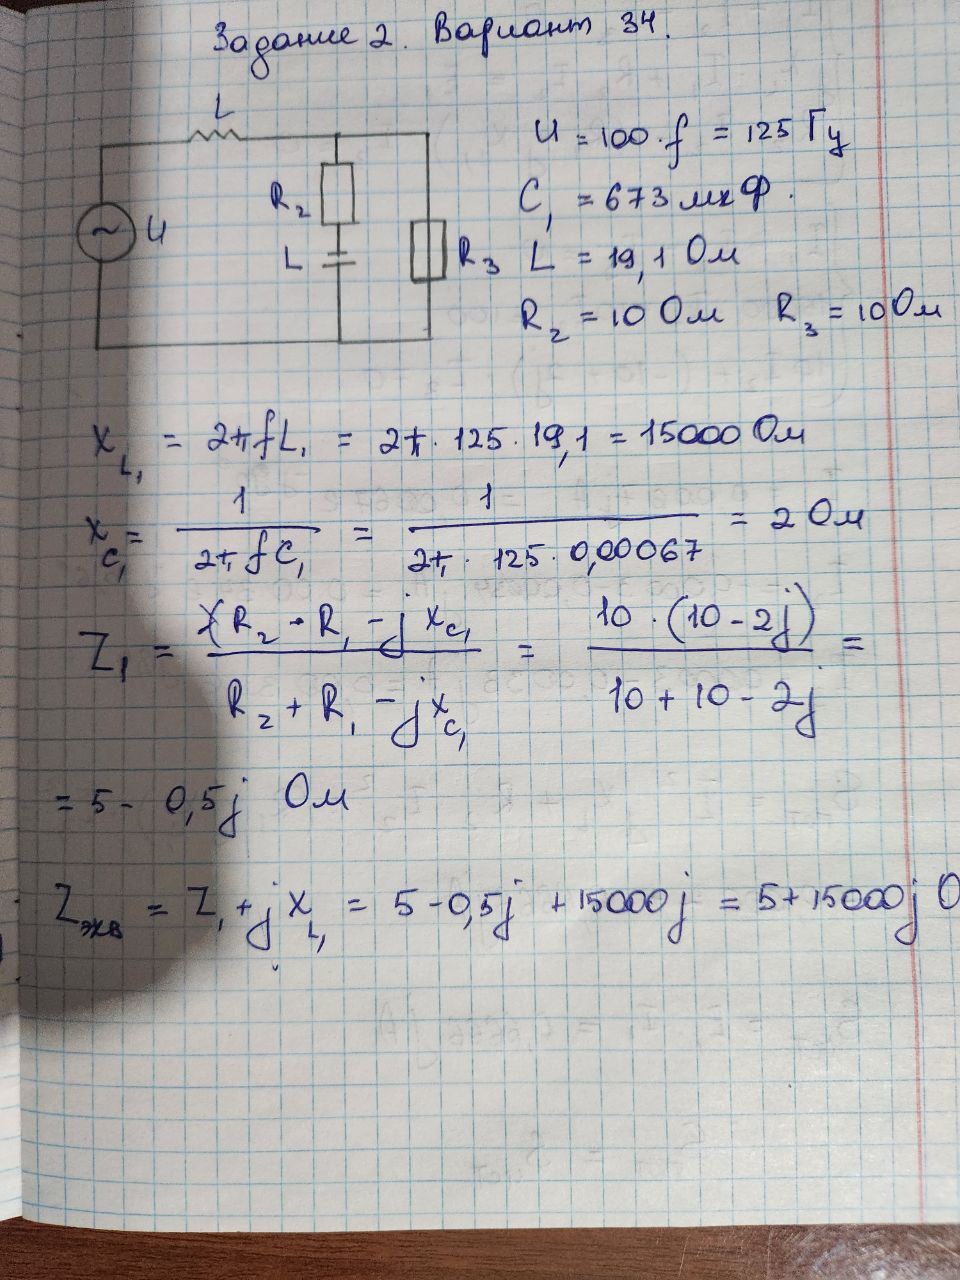 Задание 2. Вариант 34.
L
U = 100. f = 125 Гц
R₂
C₁ = 673 мкФ.
~ U
L
R₃
L = 19,1 Ом
R₂ = 10 Ом R₃ = 10 Ом
X_L₁ = 2πfL₁ = 2π · 125 · 19,1 = 15000 Ом
X_C₁ = 1 / 2πfC₁ = 1 / 2π · 125 · 0,00067 = 2 Ом
Z₁ = (R₂ · R₁ - jX_C₁ / R₂ + R₁ - jX_C₁ = 10 · (10 - 2j) / 10 + 10 - 2j =
= 5 - 0,5j Ом
Z_экв = Z₁ + jX_L₁ = 5 - 0,5j + 15000j = 5 + 15000j О